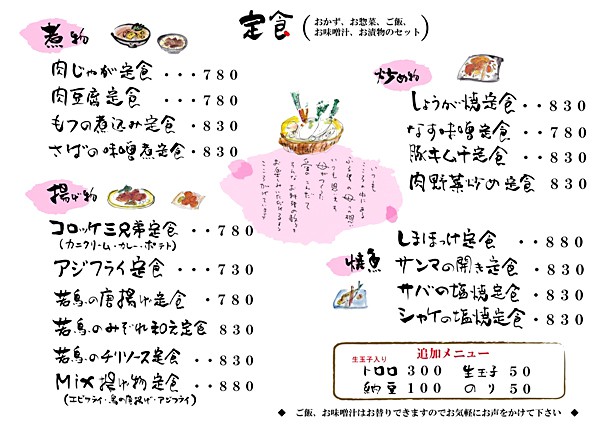 定食
(おかず、お惣菜、ご飯、
お味噌汁、お漬物のセット)
煮物
肉じゃが定食 ・・・780
肉豆腐定食 ・780
もつの煮込み定食・830
さばの味噌煮定食・830
揚げ物
コロッケ三兄弟定食 ・・780
(カニクリーム・カレー・ポテト)
アジフライ定食 ・・・730
若鳥の唐揚げ定食 ・780
若鳥のみぞれ和え定食 830
若鳥のチリソース定食 ・・830
Mix揚げ物定食 ・・880
(エビフライ・鳥の唐揚げ・アジフライ)
炒め物
しょうが焼定食・・830
なす味噌定食・・780
豚キムチ定食・・830
肉野菜炒め定食 830
焼魚
しまほっけ定食 ・・880
サンマの開き定食・830
サバの塩焼定食・・830
シャケの塩焼定食・830
追加メニュー
生玉子入り
トロロ 300 生玉子 50
納豆 100 のり 50
◆ ご飯、お味噌汁はお替りできますのでお気軽にお声をかけて下さい ◆